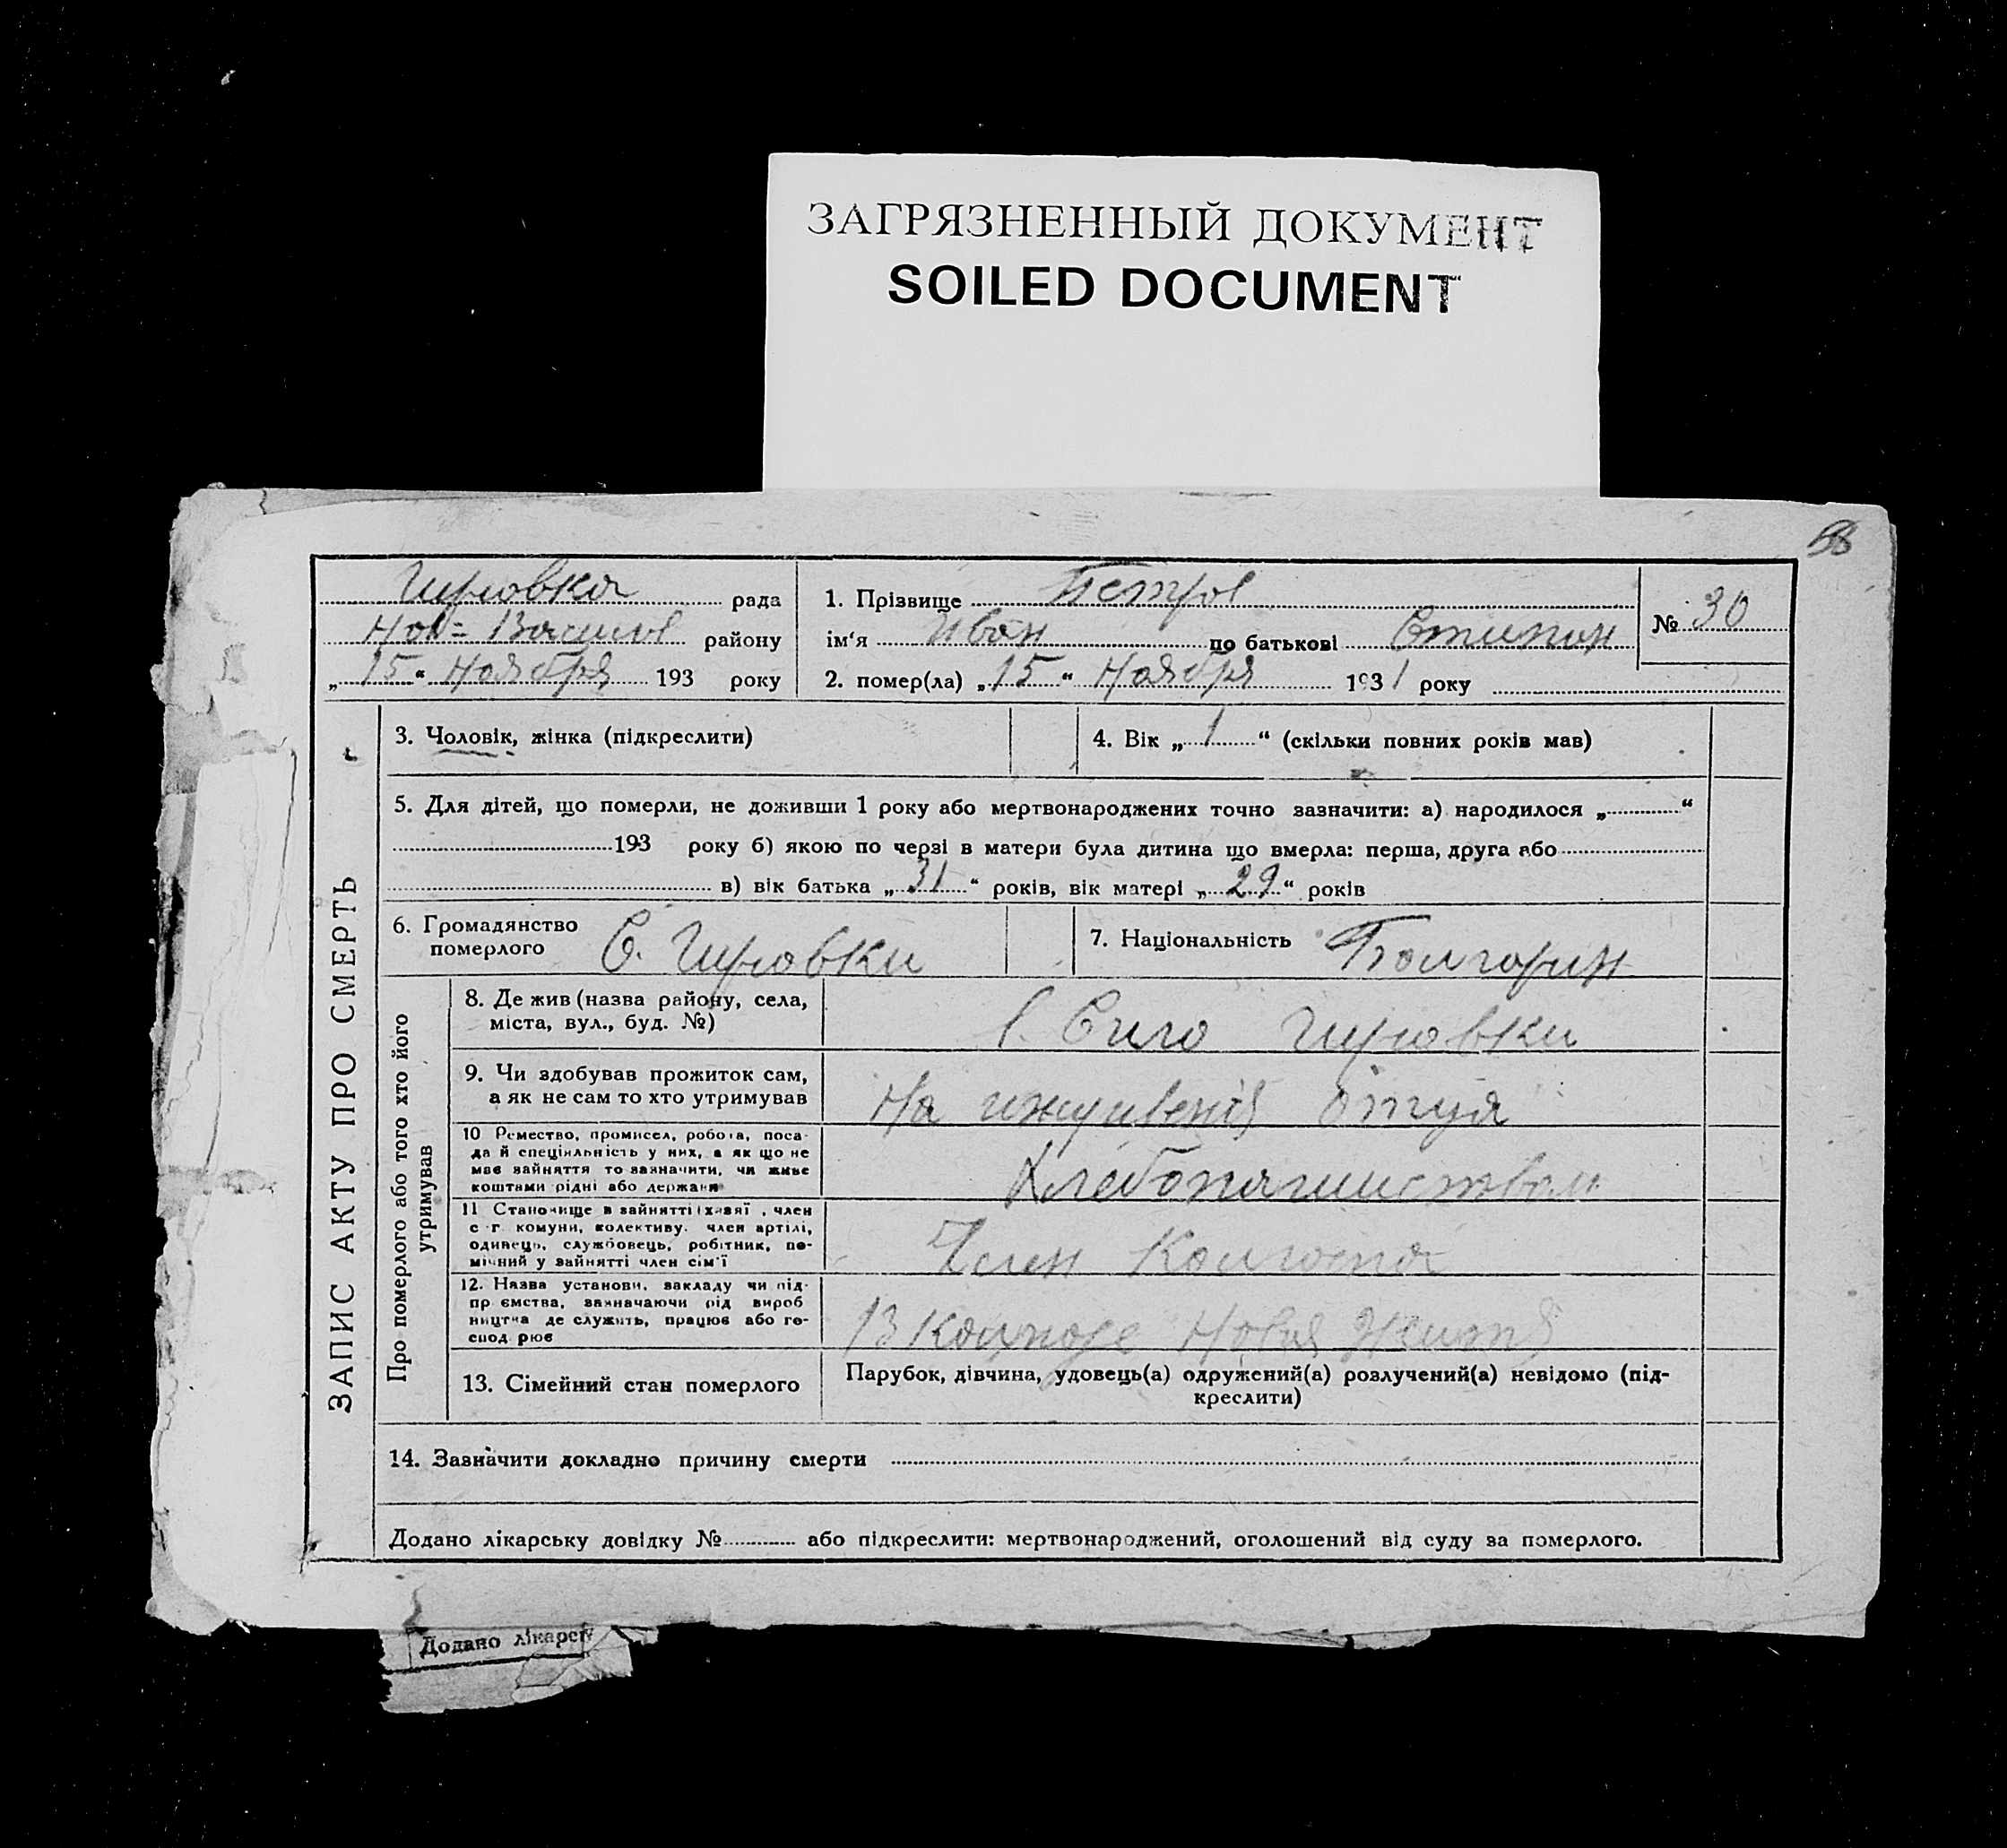 ЗАГРЯЗНЕННЫЙ ДОКУМЕНТ
SOILED DOCUMENT
58
Гировка рада
Нов= Васил района району
„15“ Ноября 193 року
1. Прізвище Петров
ім‘я Иван по батькові Стипан
2. помер(ла) „15“ Ноября 1931 року
№ 30
ЗАПИС АКТУ ПРО СМЕРТЬ
3. Чоловік, жінка (підкреслити)
4. Вік „1“ (скільки повних років мав)
5. Для дітей, що померли, не доживши 1 року або мертвонароджених точно зазначити: а) народилося „ “
193 року б) якою по черзі в матери була дитина що вмерла: перша, друга або
в) вік батька „31“ років, вік матері „29“ років
6. Громадянство
померлого
С. Гировки
7. Національність Болгорин
Про померлого або того хто його
утримував
8. Де жив (назва району, села,
міста, вул., буд. №)
Сило Гировки
9. Чи здобував прожиток сам,
а як не сам то хто утримував
На отця
10 Ремество, промисел, робота, поса-
да й спеціяльність у них, а як що не
має зайняття то зазначити, чи живе
коштами рідні або держави
Хлебопашиством
11 Становище в зайнятті (хазяї , член
с г. комуни, колективу. член артілі,
одинець, службовець, робітник, по-
мічний у зайнятті член сім‘ї
Член Колгоспа
12. Назва установи, закладу чи під-
пр ємства, зазначаючи рід вироб
ництва де служить, працює або го-
спод рює
В Колгозе Новая
13. Сімейний стан померлого
Парубок, дівчина, удовець(а) одружений(а) розлучений(а) невідомо (під-
креслити)
14. Зазначити докладно причину смерти
Додано лікарську довідку № або підкреслити: мертвонароджений, оголошений від суду за померлого.
Додано лікарсь